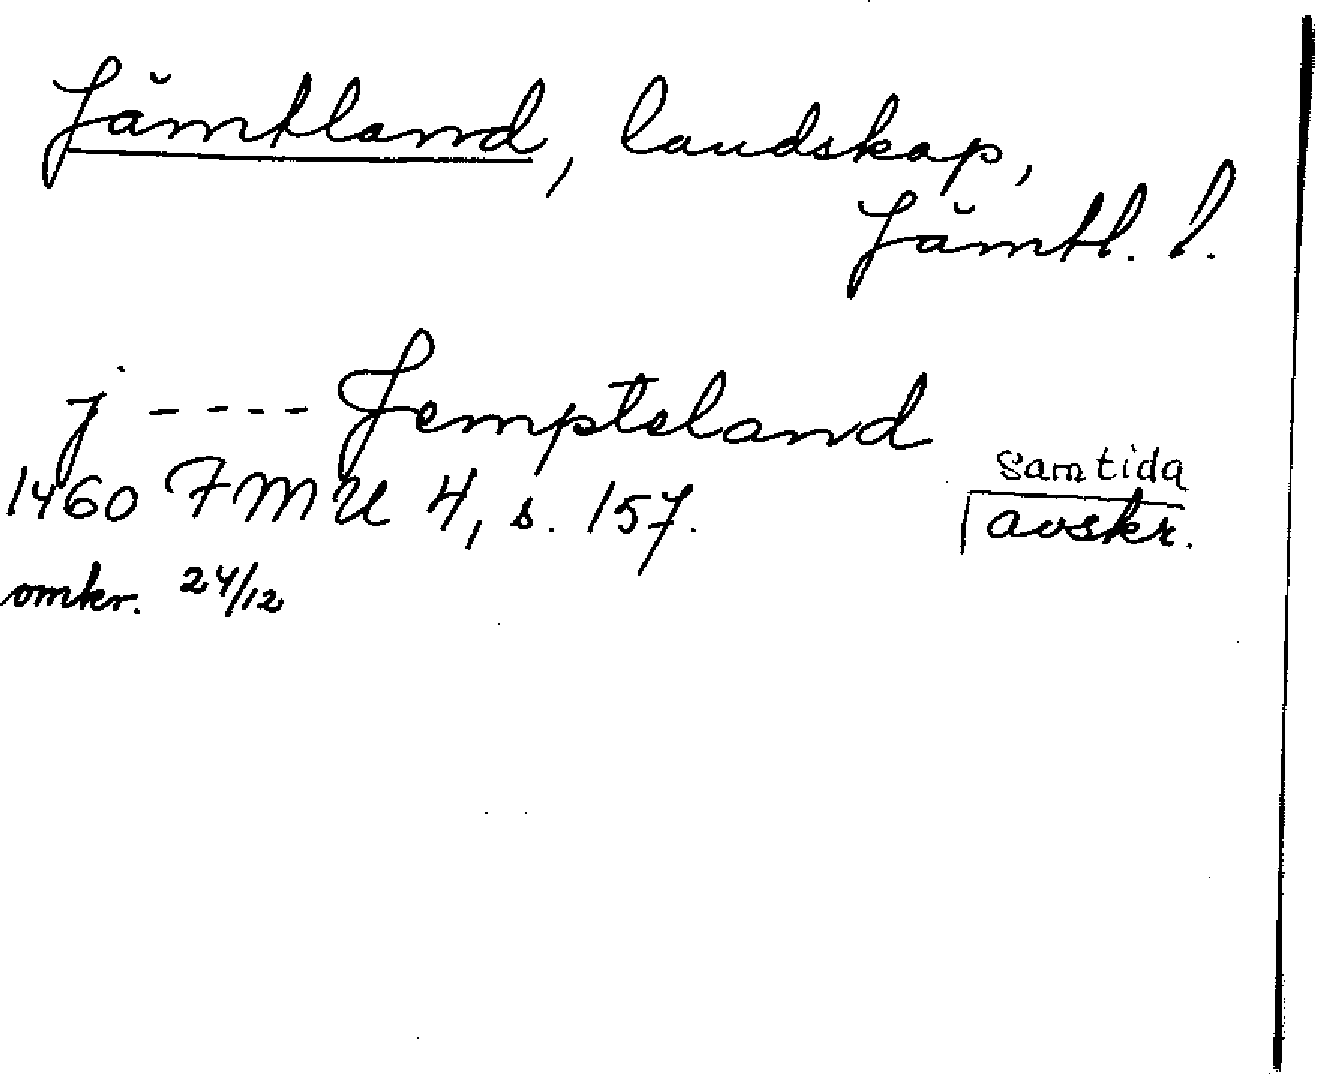 Jämtland, landskap,
Jämtl. l.
j ---- Jempteland
1460 FMU 4, s. 157.
samtida
avskr.
omkr. 24/12